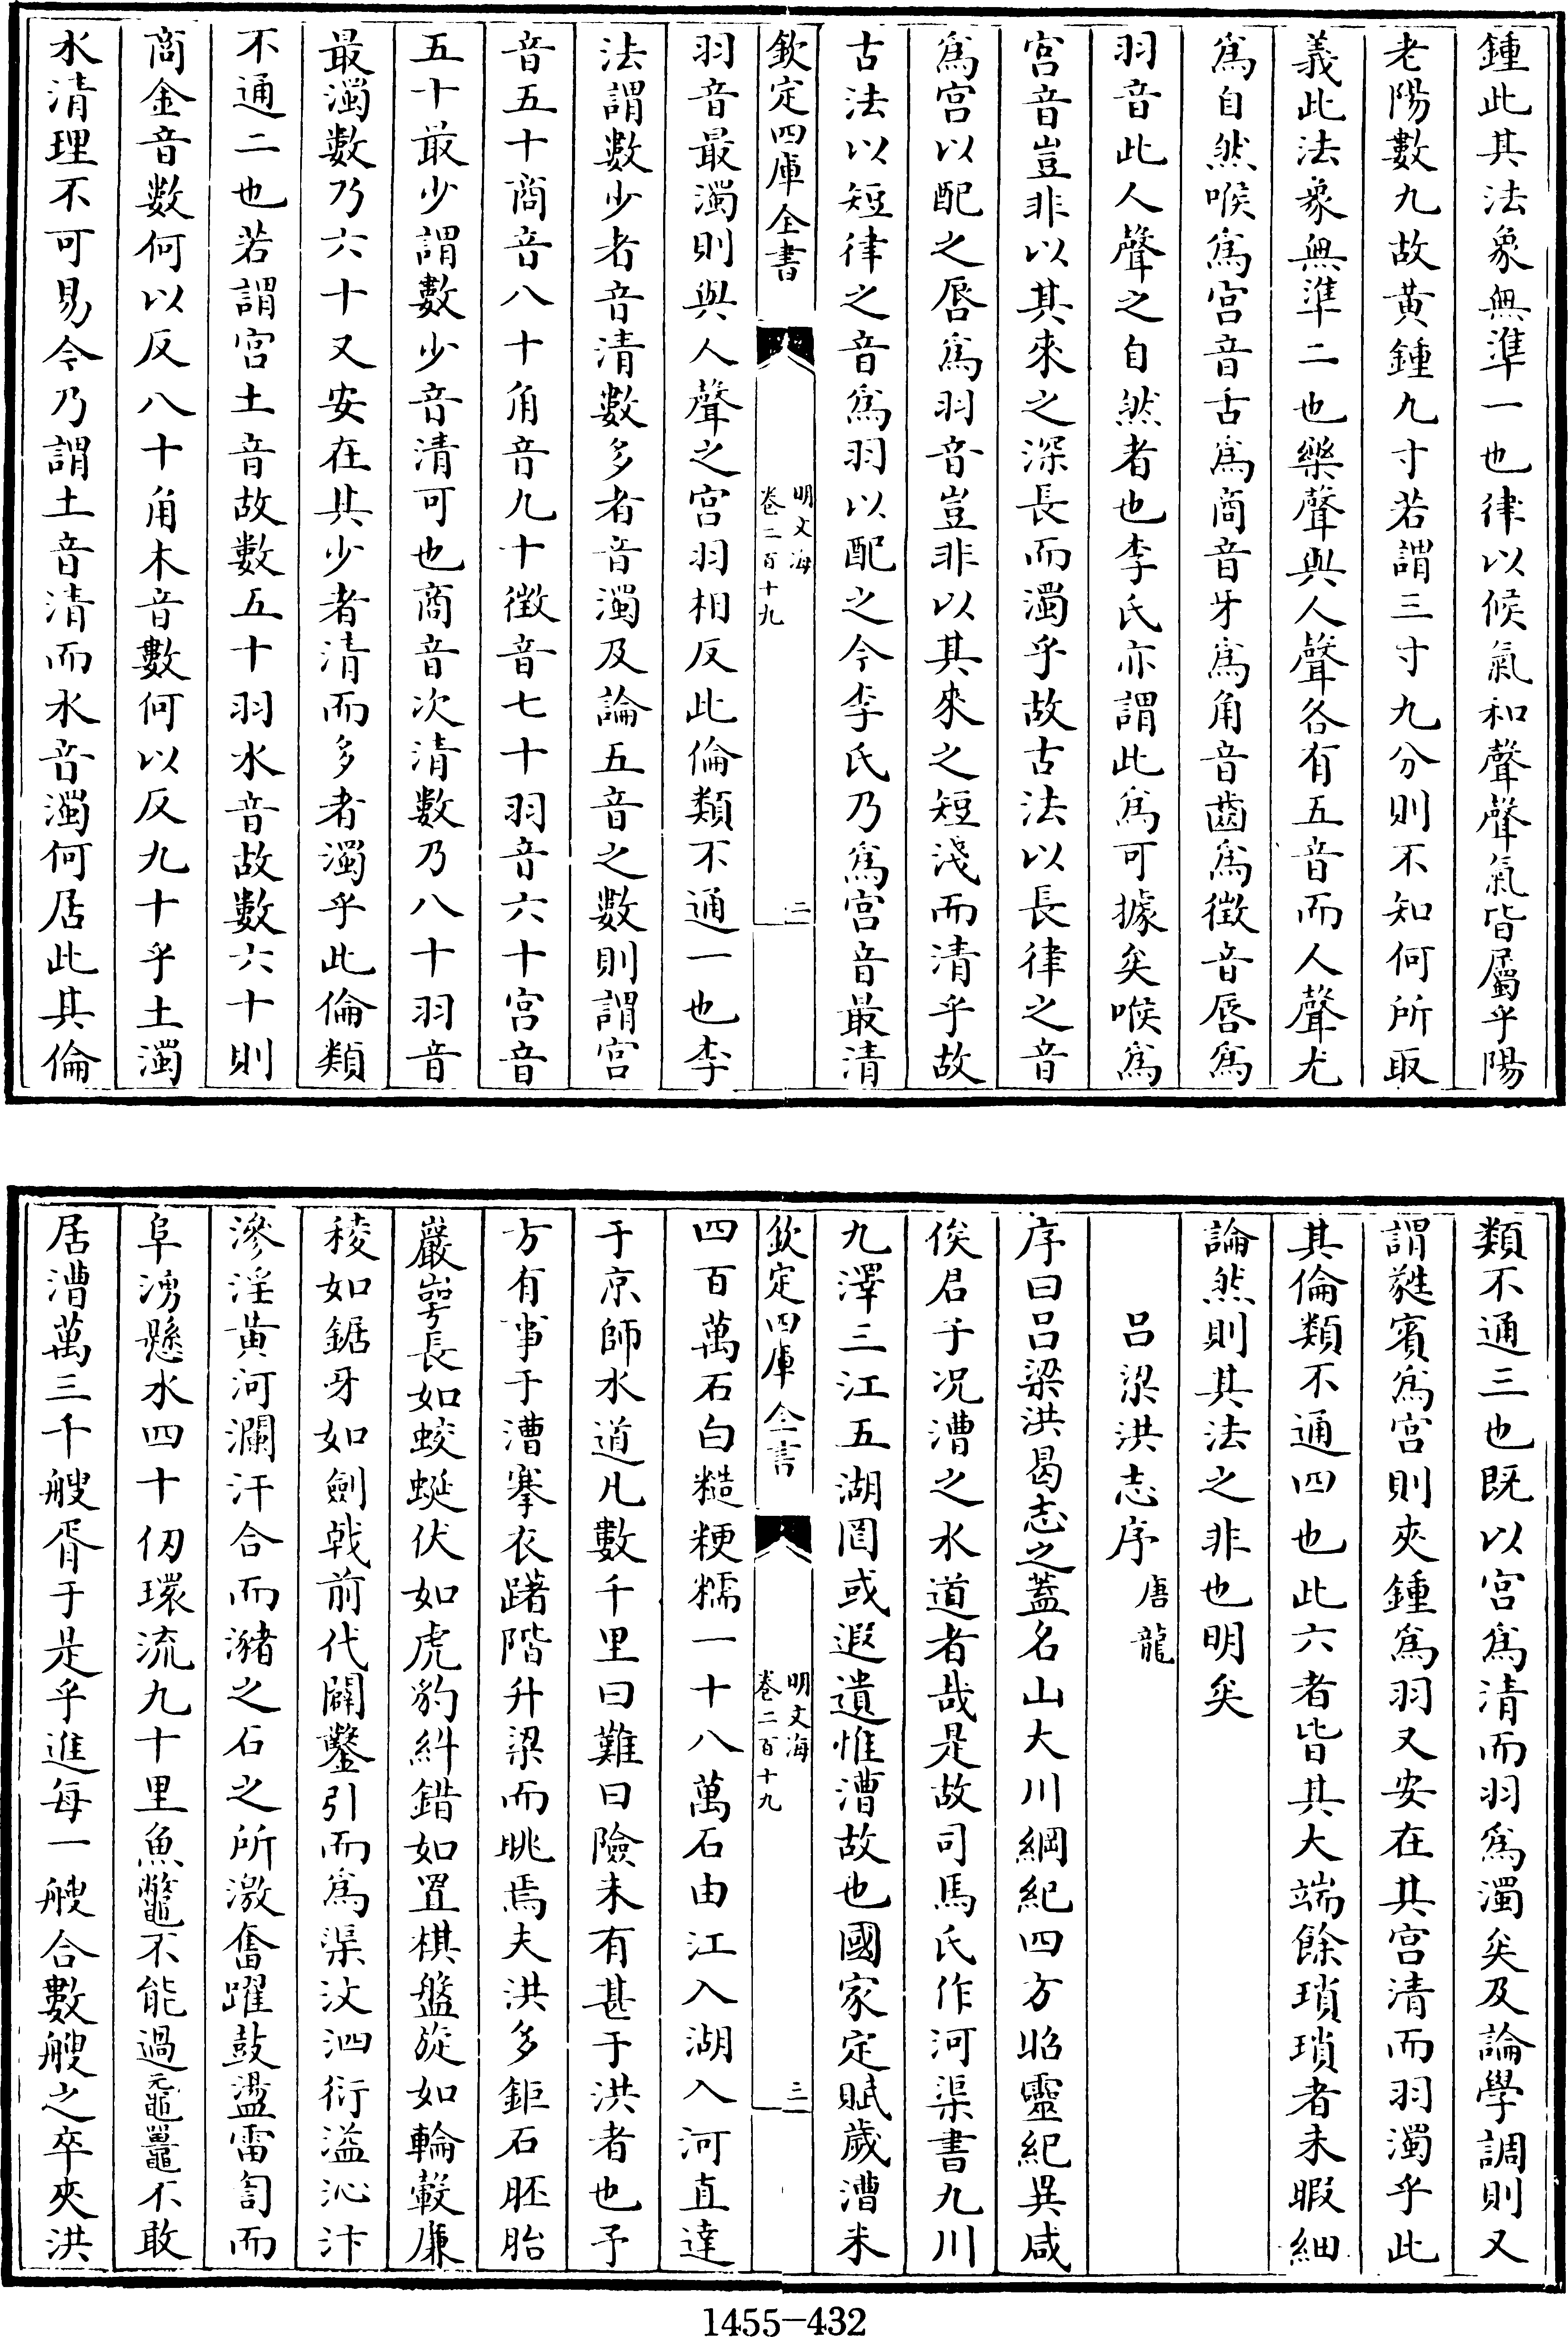 鍾此其法象無準一也律以候氣和聲聲氣皆屬乎陽
老陽數九故黄鍾九寸若謂三寸九分則不知何所取
義此法象無準二也樂聲與人聲各有五音而人聲尤
爲自然喉爲宫音舌爲商音牙爲角音齒爲徵音唇爲
羽音此人聲之自然者也李氏亦謂此爲可據矣喉爲
宫音豈非以其來之深長而濁乎故古法以長律之音
爲宫以配之唇爲羽音豈非以其來之短淺而清乎故
古法以短律之音爲羽以配之今李氏乃爲宫音最清
欽定四庫全書
明文海
卷二百十九
二
羽音最濁則與人聲之宫羽相反此倫類不通一也李
法謂數少者音清數多者音濁及論五音之數則謂宫
音五十商音八十角音九十徵音七十羽音六十宫音
五十最少謂數少音清可也商音次清數乃八十羽音
最濁數乃六十又安在其少者清而多者濁乎此倫類
不通二也若謂宫土音故數五十羽水音故數六十則
商金音數何以反八十角木音數何以反九十乎土濁
水清理不可易今乃謂土音清而水音濁何居此其倫
類不通三也既以宫爲清而羽爲濁矣及論學調則又
謂蕤賓爲宫則夾鍾爲羽又安在其宫清而羽濁乎此
其倫類不通四也此六者皆其大端餘瑣瑣者未暇細
論然則其法之非也明矣
吕梁洪志序 唐龍
序曰吕梁洪曷志之蓋名山大川綱紀四方昭靈紀異咸
俟君子况漕之水道者哉是故司馬氏作河渠書九川
九澤三江五湖罔或遐遺惟漕故也國家定賦歲漕米
欽定四庫全書
明文海
卷二百十九
三
四百萬石白糙粳糯一十八萬石由江入湖入河直達
于京師水道凡數千里曰難曰險未有甚于洪者也予
方有事于漕搴衣躇階升梁而眺焉夫洪多鉅石胚胎
巖崿長如蛟蜒伏如虎豹糾錯如置棋盤旋如輪轂廉
稜如鋸牙如劍戟前代闢鑿引而爲渠汶泗衍溢沁汴
滲淫黄河瀾汗合而瀦之石之所激奮躍鼓盪雷訇而
阜湧懸水四十仞環流九十里魚鼈不能過黿鼉不敢
居漕萬三千艘胥于是乎進每一艘合數艘之卒夾洪
1455-432